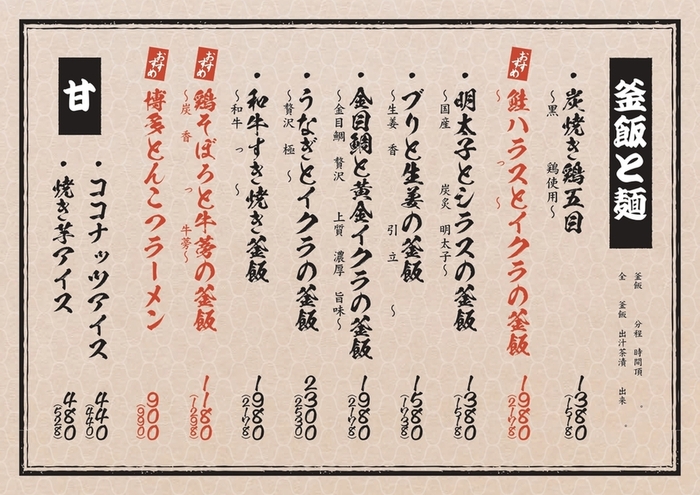 釜飯と麺
釜飯 分程 時間頂
全 釜飯 出汁茶漬 出来
・炭焼き鶏五目
〜黒 鶏使用〜
1380
(1518)
おすすめ
鮭ハラスとイクラの釜飯
〜 っ 〜
1980
(2178)
・明太子とシラスの釜飯
〜国産 炭炙 明太子〜
1380
(1518)
・ブリと生姜の釜飯
〜生姜 香 引 立 〜
1580
(1738)
・金目鯛と黄金イクラの釜飯
〜金目鯛 贅沢 上質 濃厚 旨味〜
1980
(2178)
・うなぎとイクラの釜飯
〜贅沢 極 〜
2300
(2530)
・和牛すき焼き釜飯
〜和牛 っ 〜
1980
(2178)
おすすめ
鶏そぼろと牛蒡の釜飯
〜炭 香 っ 牛蒡〜
1180
(1298)
おすすめ
博多とんこつラーメン
900
(990)
甘
・ココナッツアイス
440
・焼き芋アイス
480
(528)